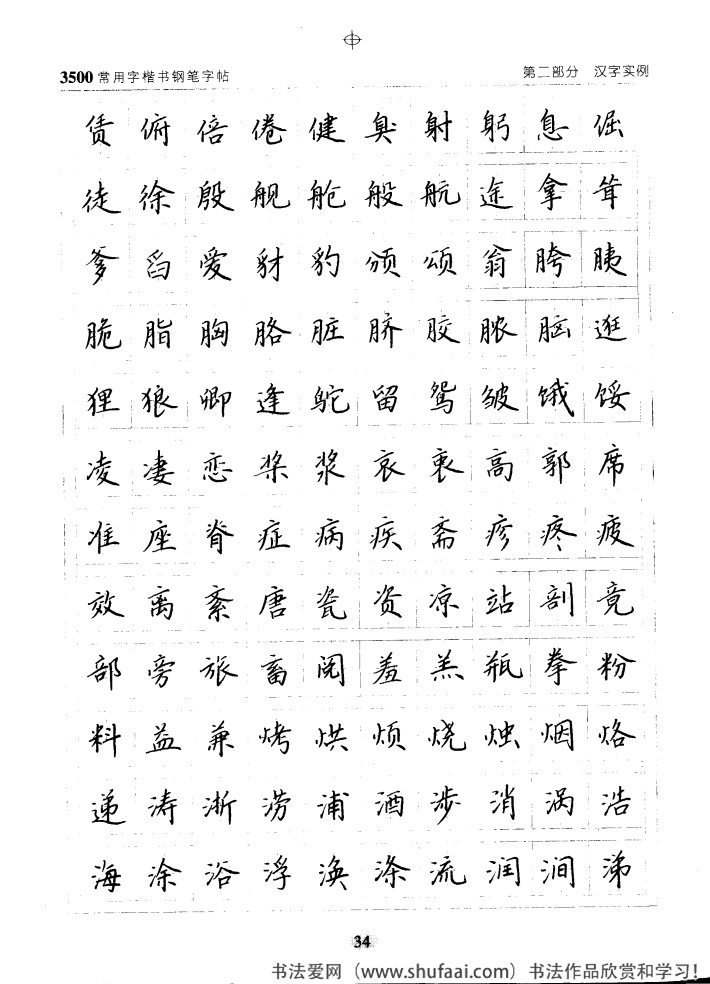 3500常用字楷书钢笔字帖 第二部分 汉字实例
赁俯倍倦健臭射躬息倔
徒徐殷舰舱般航途拿耸
爹舀爱豺豹颁颂翁胯胰
脆脂胸胳脏脐胶脓脑逛
狸狼卿逢鸵留鸳皱饿馁
凌凄恋桨浆哀衷高郭席
准座脊症病疾斋疹疼疲
效离紊唐瓷资凉站剖竟
部旁旅畜阅羞羔瓶拳粉
料益兼烤烘烦烧烛烟烙
递涛浙涝浦酒涉消涡浩
海涂浴浮涣涤流润涧涕
34
书法爱网（www.shufaai.com）书法作品欣赏和学习！